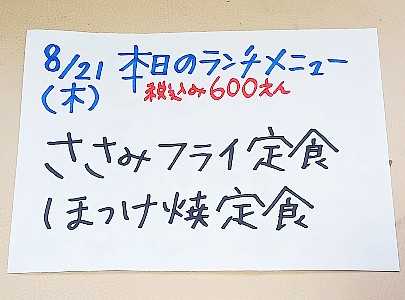 8/21 本日のランチメニュー
(木) 税込み600えん
ささみフライ定食
ほっけ焼定食